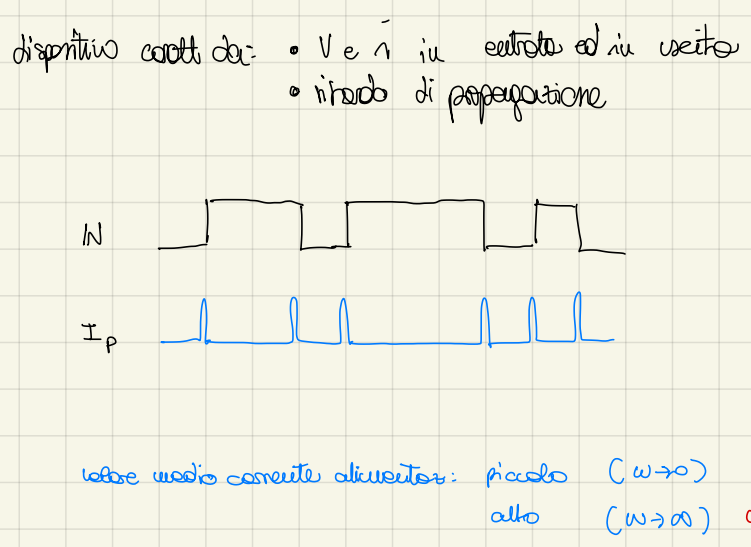 dispositivo caratt da: • V e i in entrata ed in uscita
• ritardo di propagazione
IN
I_P
valore medio corrente alimentaz: piccolo (ω→0)
alto (ω→∞)